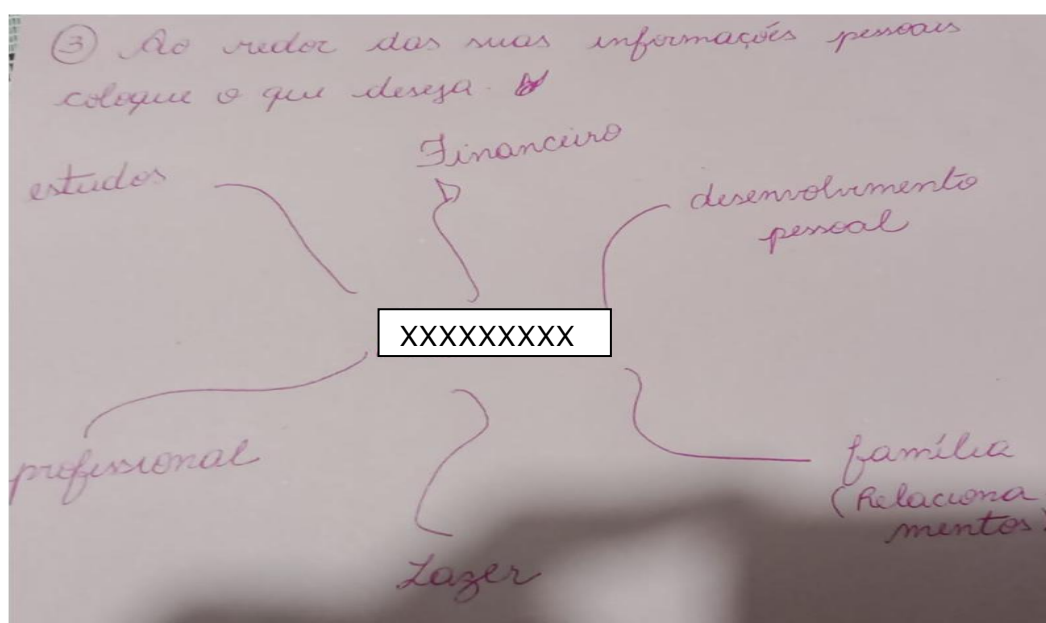 ③ Ao redor das suas informações pessoais
coloque o que deseja.
Financeiro
estudos
desenvolvimento
pessoal
XXXXXXXXX
profissional
família
(Relaciona
mentos)
Lazer